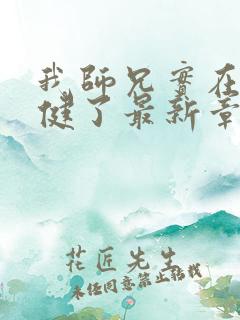 我師兄實在
健了最新章
花匠先生
未经同意禁止转载